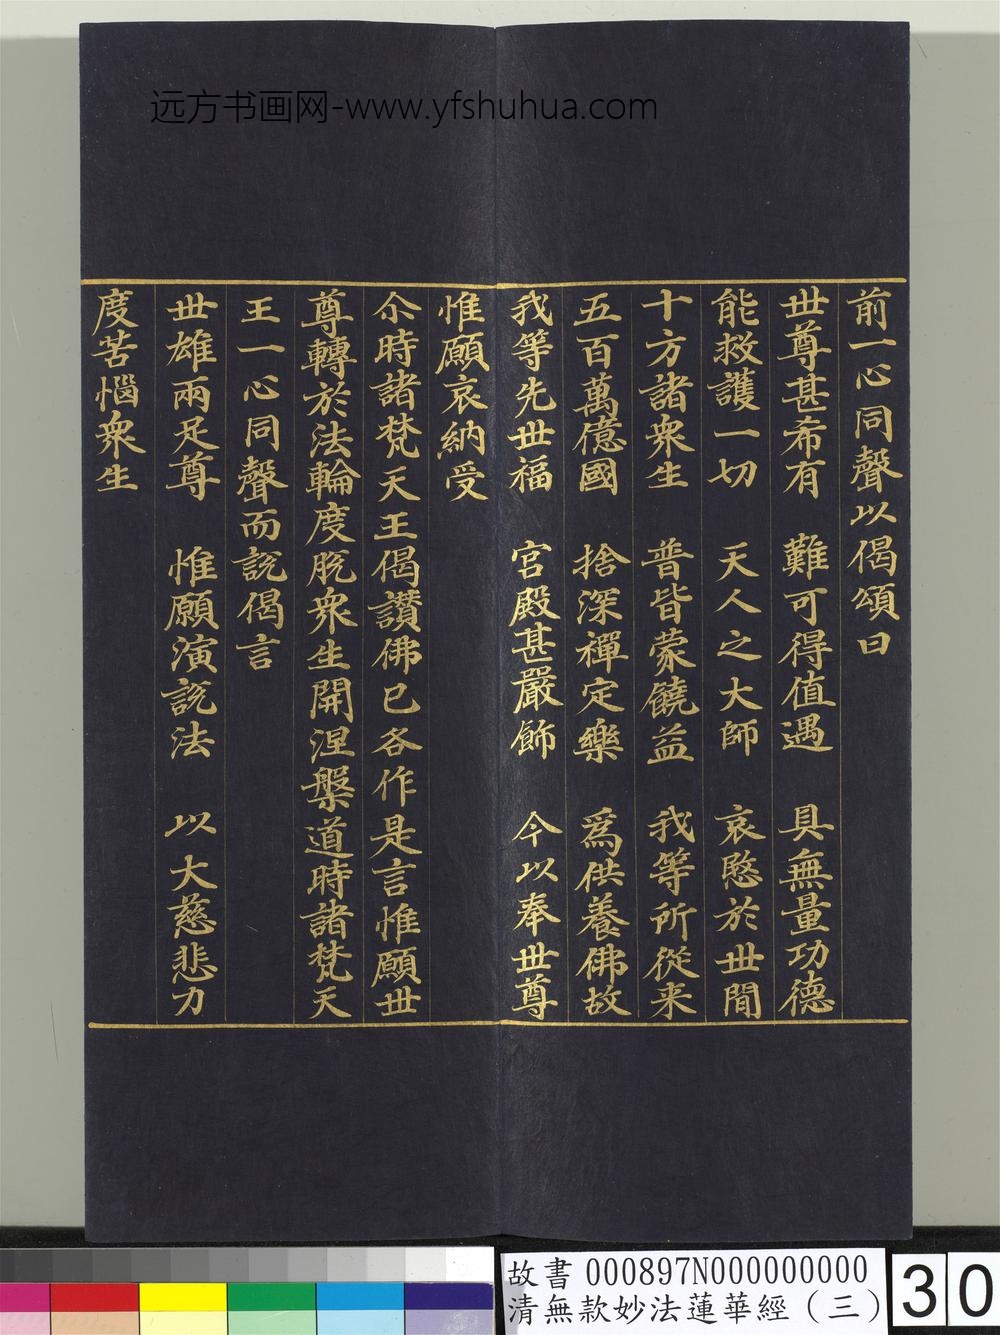 远方书画网-www.yfshuhua.com
前一心同聲以偈頌曰
世尊甚希有　難可得值遇　具無量功德
能救護一切　天人之大師　哀愍於世間
十方諸衆生　普皆蒙饒益　我等所從来
五百萬億國　捨深禪定樂　為供養佛故
我等先世福　宮殿甚嚴飾　今以奉世尊
惟願哀納受
尒時諸梵天王偈讚佛已各作是言惟願世
尊轉於法輪度脫衆生開涅槃道時諸梵天
王一心同聲而說偈言
世雄兩足尊　惟願演說法　以大慈悲力
度苦惱衆生
故書 000897N000000000
清無款妙法蓮華經（三）
30